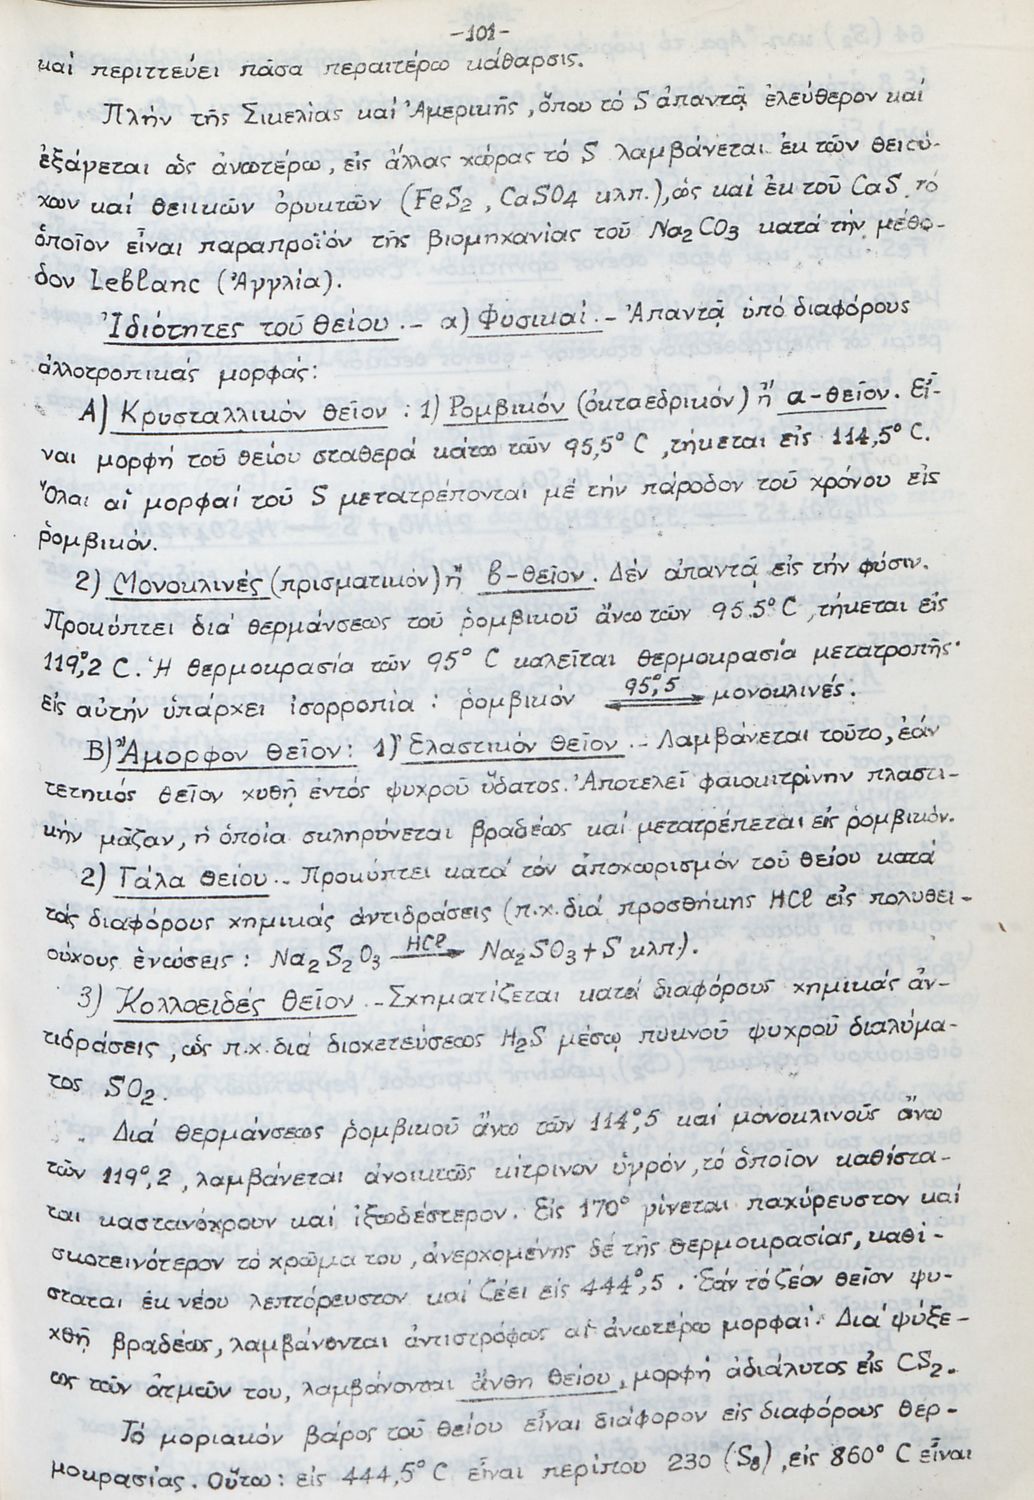 -101-
καί περιττεύει πᾶσα περαιτέρω κάθαρσις.
Πλήν τῆς Σικελίας καί Ἀμερικῆς, ὅπου τό S ἀπαντᾷ ἐλεύθερον καί
ἐξάγεται ὡς ἀνωτέρω, εἰς ἄλλας χώρας τό S λαμβάνεται ἐκ τῶν θειού-
χων καί θειικῶν ὀρυκτῶν (FeS2, CaSO4 κλπ.), ὡς καί ἐκ τοῦ CaS τό
ὁποῖον εἶναι παραπροϊόν τῆς βιομηχανίας τοῦ Na2CO3 κατά τήν μέθο-
δον Leblanc (Ἀγγλία).
Ἰδιότητες τοῦ θείου.- α) Φυσικαί.- Ἀπαντᾷ ὑπό διαφόρους
ἀλλοτροπικάς μορφάς:
Α) Κρυσταλλικόν θεῖον: 1) Ρομβικόν (ὀκταεδρικόν) ἤ α-θεῖον. Εἶ-
ναι μορφή τοῦ θείου σταθερά κάτω τῶν 95,5° C, τήκεται εἰς 114,5° C.
Ὅλαι αἱ μορφαί τοῦ S μετατρέπονται μέ τήν πάροδον τοῦ χρόνου εἰς
ῥομβικόν.
2) Μονοκλινές (πρισματικόν) ἤ β-θεῖον. Δέν ἀπαντᾷ εἰς τήν φύσιν.
Προκύπτει διά θερμάνσεως τοῦ ῥομβικοῦ ἄνω τῶν 95.5° C, τήκεται εἰς
119°,2 C. Ἡ θερμοκρασία τῶν 95° C καλεῖται θερμοκρασία μετατροπῆς·
εἰς αὐτήν ὑπάρχει ἰσορροπία: ῥομβικόν 95°,5 ⇌ μονοκλινές.
Β) Ἄμορφον θεῖον: 1) Ἐλαστικόν θεῖον.- Λαμβάνεται τοῦτο, ἐάν
τετηκός θεῖον χυθῇ ἐντός ψυχροῦ ὕδατος. Ἀποτελεῖ φαιοκιτρίνην πλαστι-
κήν μᾶζαν, ἡ ὁποία σκληρύνεται βραδέως καί μετατρέπεται εἰς ῥομβικόν.
2) Γάλα θείου.- Προκύπτει κατά τόν ἀποχωρισμόν τοῦ θείου κατά
τάς διαφόρους χημικάς ἀντιδράσεις (π.χ. διά προσθήκης HCl εἰς πολυθει-
ούχους ἑνώσεις: Na2S2O3 HCl → Na2SO3+S κλπ.).
3) Κολλοειδές θεῖον.- Σχηματίζεται κατά διαφόρους χημικάς ἀν-
τιδράσεις, ὡς π.χ. διά διοχετεύσεως H2S μέσῳ πυκνοῦ ψυχροῦ διαλύμα-
τος SO2.
Διά θερμάνσεως ῥομβικοῦ ἄνω τῶν 114°,5 καί μονοκλινοῦς ἄνω
τῶν 119°,2, λαμβάνεται ἀνοικτῶς κίτρινον ὑγρόν, τό ὁποῖον καθίστα-
ται καστανόχρουν καί ἰξωδέστερον. Εἰς 170° γίνεται παχύρευστον καί
σκοτεινότερον τό χρῶμα του, ἀνερχομένης δέ τῆς θερμοκρασίας, καθί-
σταται ἐκ νέου λεπτόρευστον καί ζέει εἰς 444°,5. Ἐάν τό ζέον θεῖον ψυ-
χθῇ βραδέως, λαμβάνονται ἀντιστρόφως αἱ ἀνωτέρω μορφαί. Διά ψύξε-
ως τῶν ἀτμῶν του, λαμβάνονται ἄνθη θείου, μορφή ἀδιάλυτος εἰς CS2.
Τό μοριακόν βάρος τοῦ θείου εἶναι διάφορον εἰς διαφόρους θερ-
μοκρασίας. Οὕτω: εἰς 444,5° C εἶναι περίπου 230 (S8), εἰς 860° C εἶναι